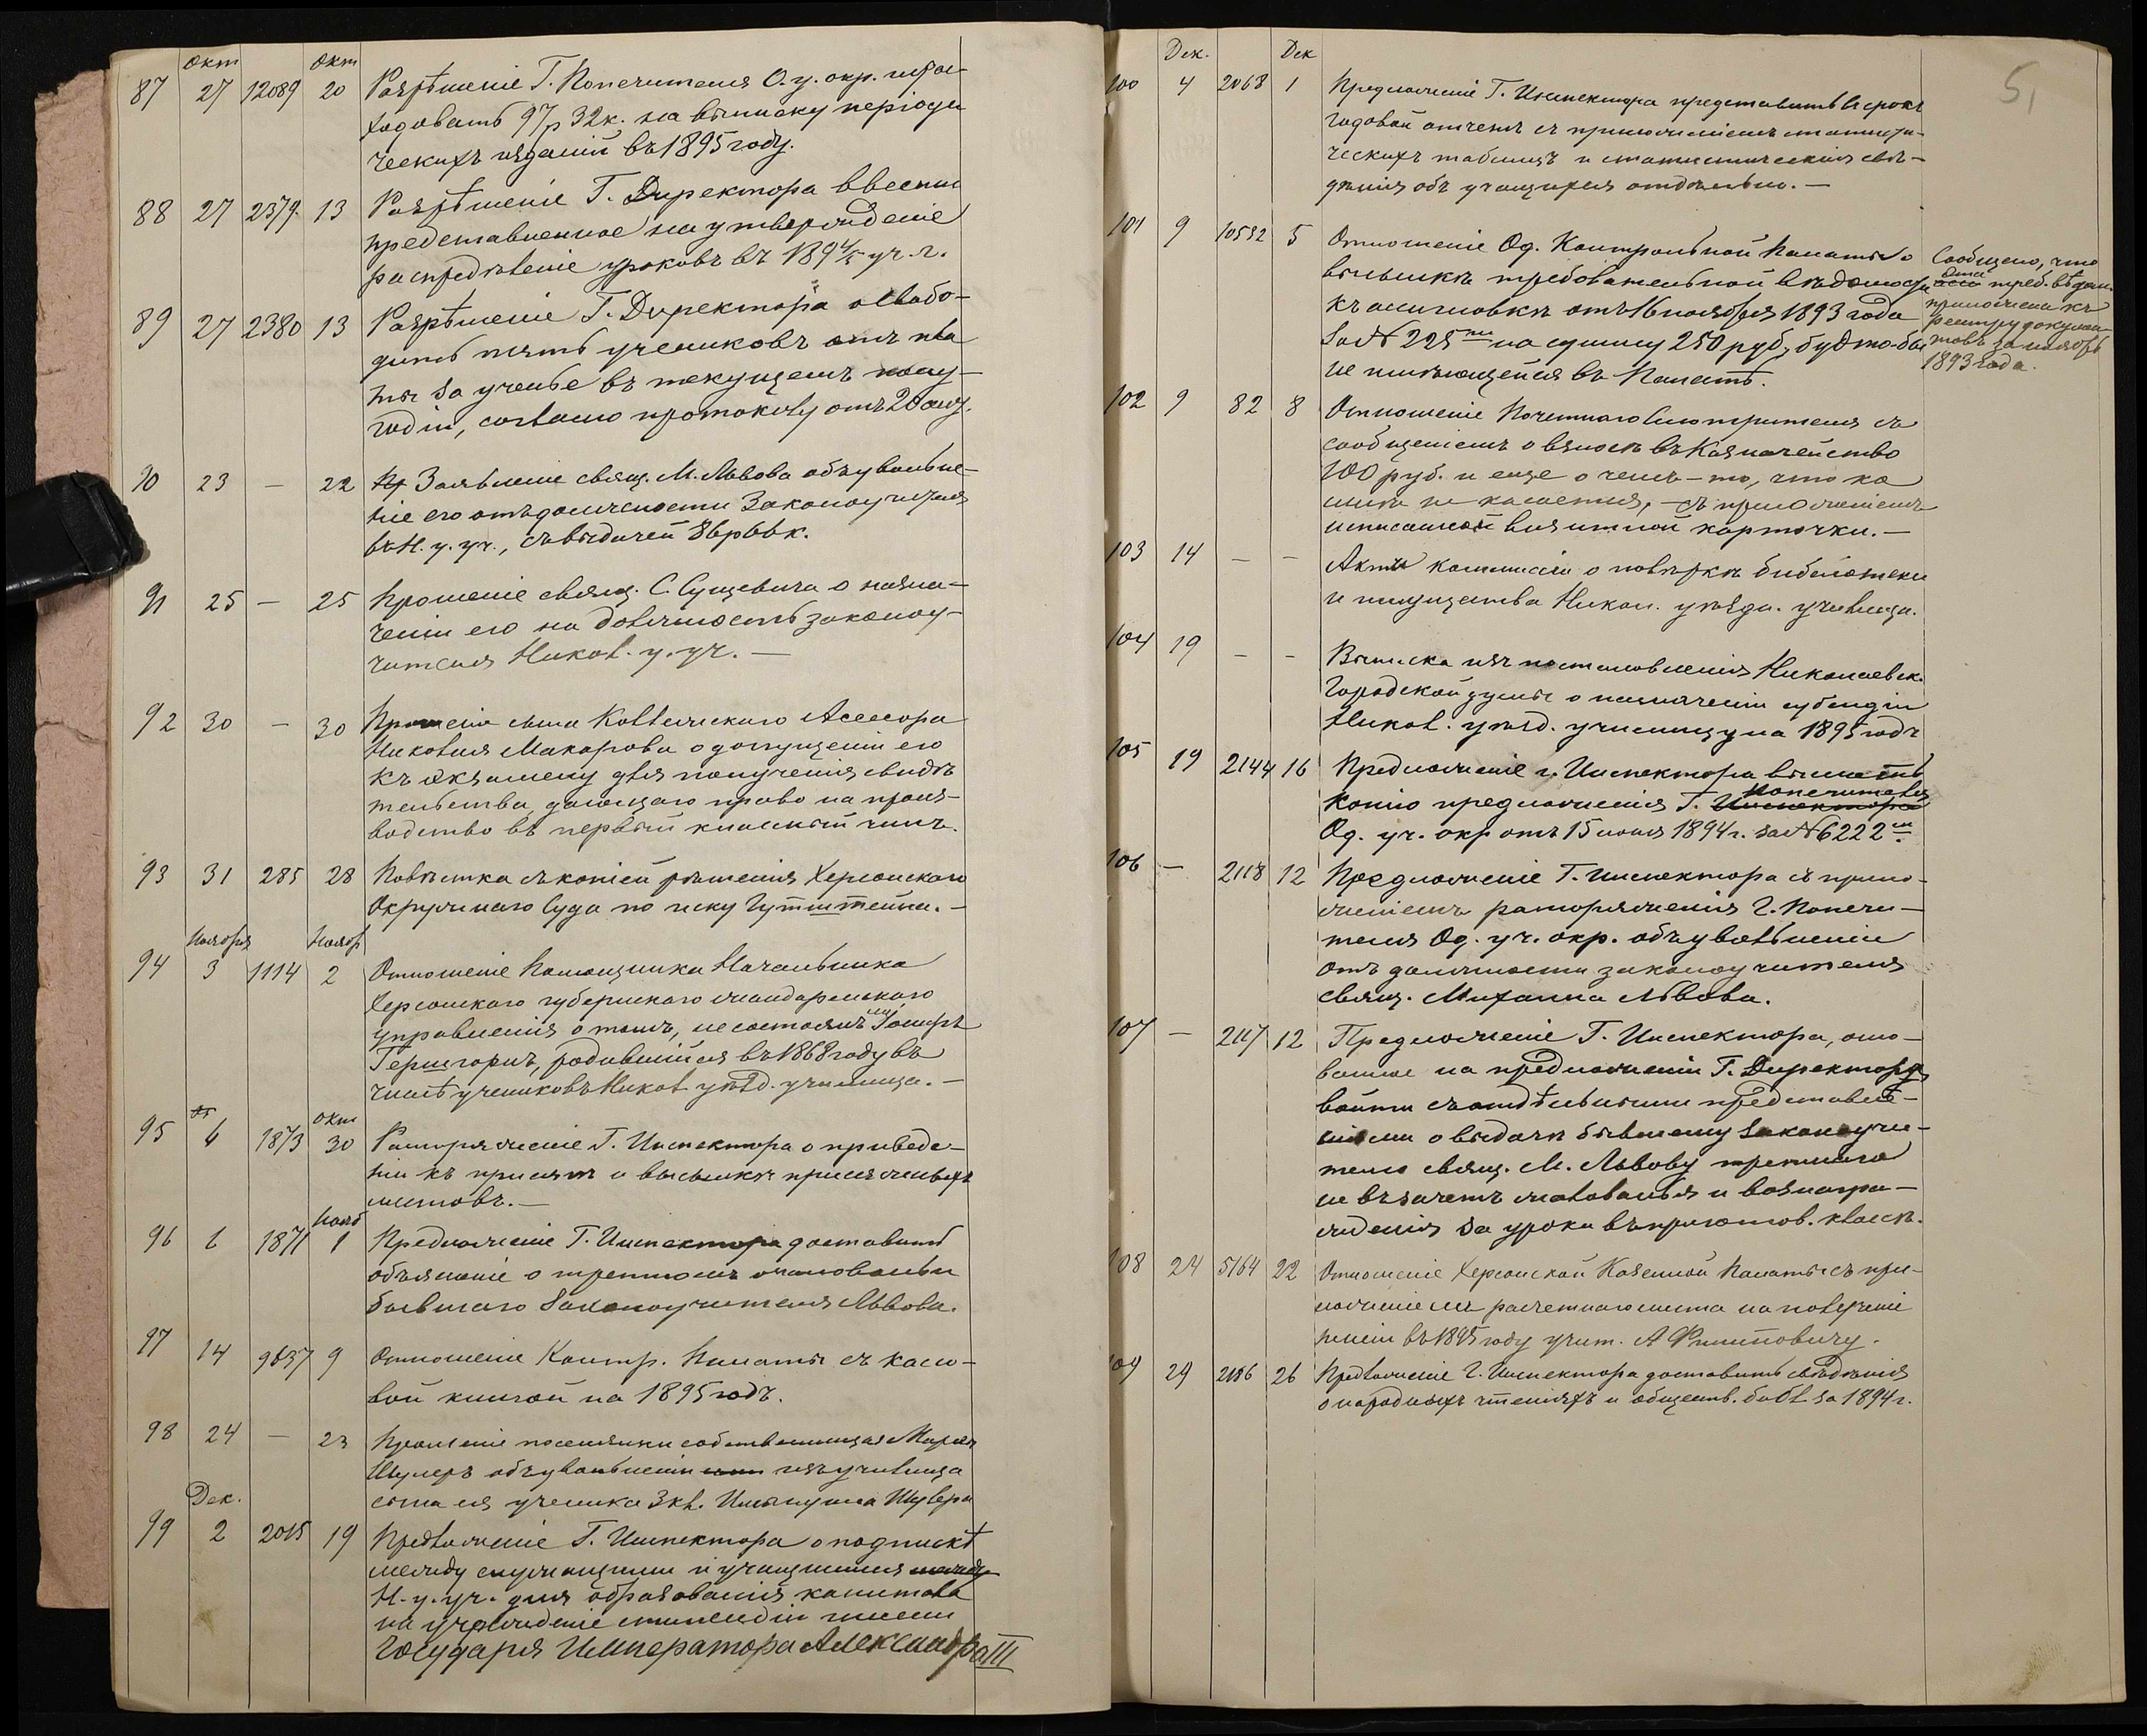 Окт Окт
87 27 12089 20 Разрѣшеніе Г. Попечителя О. у. окр. израс-
ходовать 97р 32к. на выписку періоди
ческихъ изданій въ 1895 году.
88 27 2379. 13 Разрѣшеніе Г. Директора ввести
представленное на утвержденіе
распредѣленіе уроковъ въ 189 4/5 уч. г.
89 27 2380 13 Разрѣшеніе Г. Директора освобо-
дить пять учениковъ отъ пла
ты за ученье въ текущемъ полу-
годіи, согласно протоколу отъ 20 авг.
90 23 — 22 Заявленіе свящ. М. Львова объ увольне-
ніе его отъ должности Законоучителя
въ Н. у. уч., съ выдачей 86р66к.
91 25 — 25 Прошеніе свящ. С. Сущевича о назна-
ченіи его на должность законоу-
чителя Никол. у. уч. —
92 30 — 30 Прошеніе сына Коллежскаго Асессора
Николая Макарова о допущеніи его
къ экзамену для полученія свидѣ
тельства, дающаго право на произ-
водство въ первый классный чинъ.
93 31 285 28 Повѣстка съ копіей рѣшенія Херсонскаго
Окружнаго Суда по иску Гутштейна. —
Ноября Ноябр
94 3 1114 2 Отношеніе Помощника Начальника
Херсонскаго губернскаго жандармскаго
управленія о томъ, не состоялъ ли
Гершгоринъ, родившійся въ 1868 году въ
числѣ учениковъ Никол. уѣзд. училища. —
Окт
95 6 1873 30 Распоряженіе Г. Инспектора о приведе-
ніи къ присягѣ и высылкѣ присяжныхъ
листовъ. —
Нояб
96 6 1871 1 Предложеніе Г. Инспектора доставить
объясненіе о третномъ жалованьи
бывшаго Законоучителя Львова.
97 14 9637 9 Отношеніе Контр. Палаты съ кассо-
вой книгой на 1895 годъ.
98 24 — 23 Прошеніе поселянки собственницы Маріи
Шулеръ объ увольненіи изъ училища
сына ея ученика 3 кл. Шулера
Дек.
99 2 2015 19 Предложеніе Г. Инспектора о подпискѣ
между служащими и учащимися между
Н. у. уч. для образованія капитала
на учрежденіе стипендіи имени
Государя Императора Александра III
5
Дек. Дек
100 4 2068 1 Предложеніе Г. Инспектора представить въ срокъ
годовой отчетъ съ приложеніемъ статисти-
ческихъ таблицъ и статистическія свѣ-
дѣнія объ учащихся отдѣльно. —
101 9 10532 5 Отношеніе Од. Контрольной Палаты о
высылкѣ требовательной вѣдомости
къ ассигновкѣ отъ 16 ноября 1893 года
за № 225 на сумму 250 руб, будто-бы
не имѣющейся въ Палатѣ.
Сообщено, что
эта треб. вѣдом.
приложена къ
реестру докумен-
товъ за ноябрь
1893 года.
102 9 82 8 Отношеніе Почетнаго Смотрителя съ
сообщеніемъ о взносѣ въ Казначейство
100 руб. и еще о чемъ-то, что ка
не касается, — съ приложеніемъ
исписанной визитной карточки. —
103 14 — — Акты коммисіи о повѣркѣ библіотеки
и имущества Никол. уѣздн. училища.
104 19 — — Выписка изъ постановленія Николаевск.
Городской думы о назначеніи субсидіи
Никол. уѣзд. училищу на 1895 годъ
105 19 2144 16 Предложеніе г. Инспектора выслать
копію предложенія Г. Инспектора Попечителя
Од. уч. окр отъ 15 іюня 1894 г. за № 6222
106 — 2118 12 Предложеніе Г. Инспектора съ прило-
женіемъ распоряженія Г. Попечи-
теля Од. уч. окр. объ увольненіи
отъ должности законоучителя
свящ. Михаила Львова.
107 — 2117 12 Предложеніе Г. Инспектора, осно-
ванное на предложеніи Г. Директора
войти съ отдѣльными представле-
ніями о выдачѣ бывшему Законоучи-
телю свящ. М. Львову третнаго
не въ зачетъ жалованья и вознагра-
жденія за уроки въ приготов. классѣ.
108 24 5164 22 Отношеніе Херсонской Казенной Палаты съ при-
ложеніемъ расчетнаго листа на полученіе
пенсіи въ 1895 году учит. А Филиповичу.
109 29 2186 26 Предложеніе Г. Инспектора доставить свѣдѣнія
о народныхъ чтеніяхъ и обществ. библ. за 1894 г.